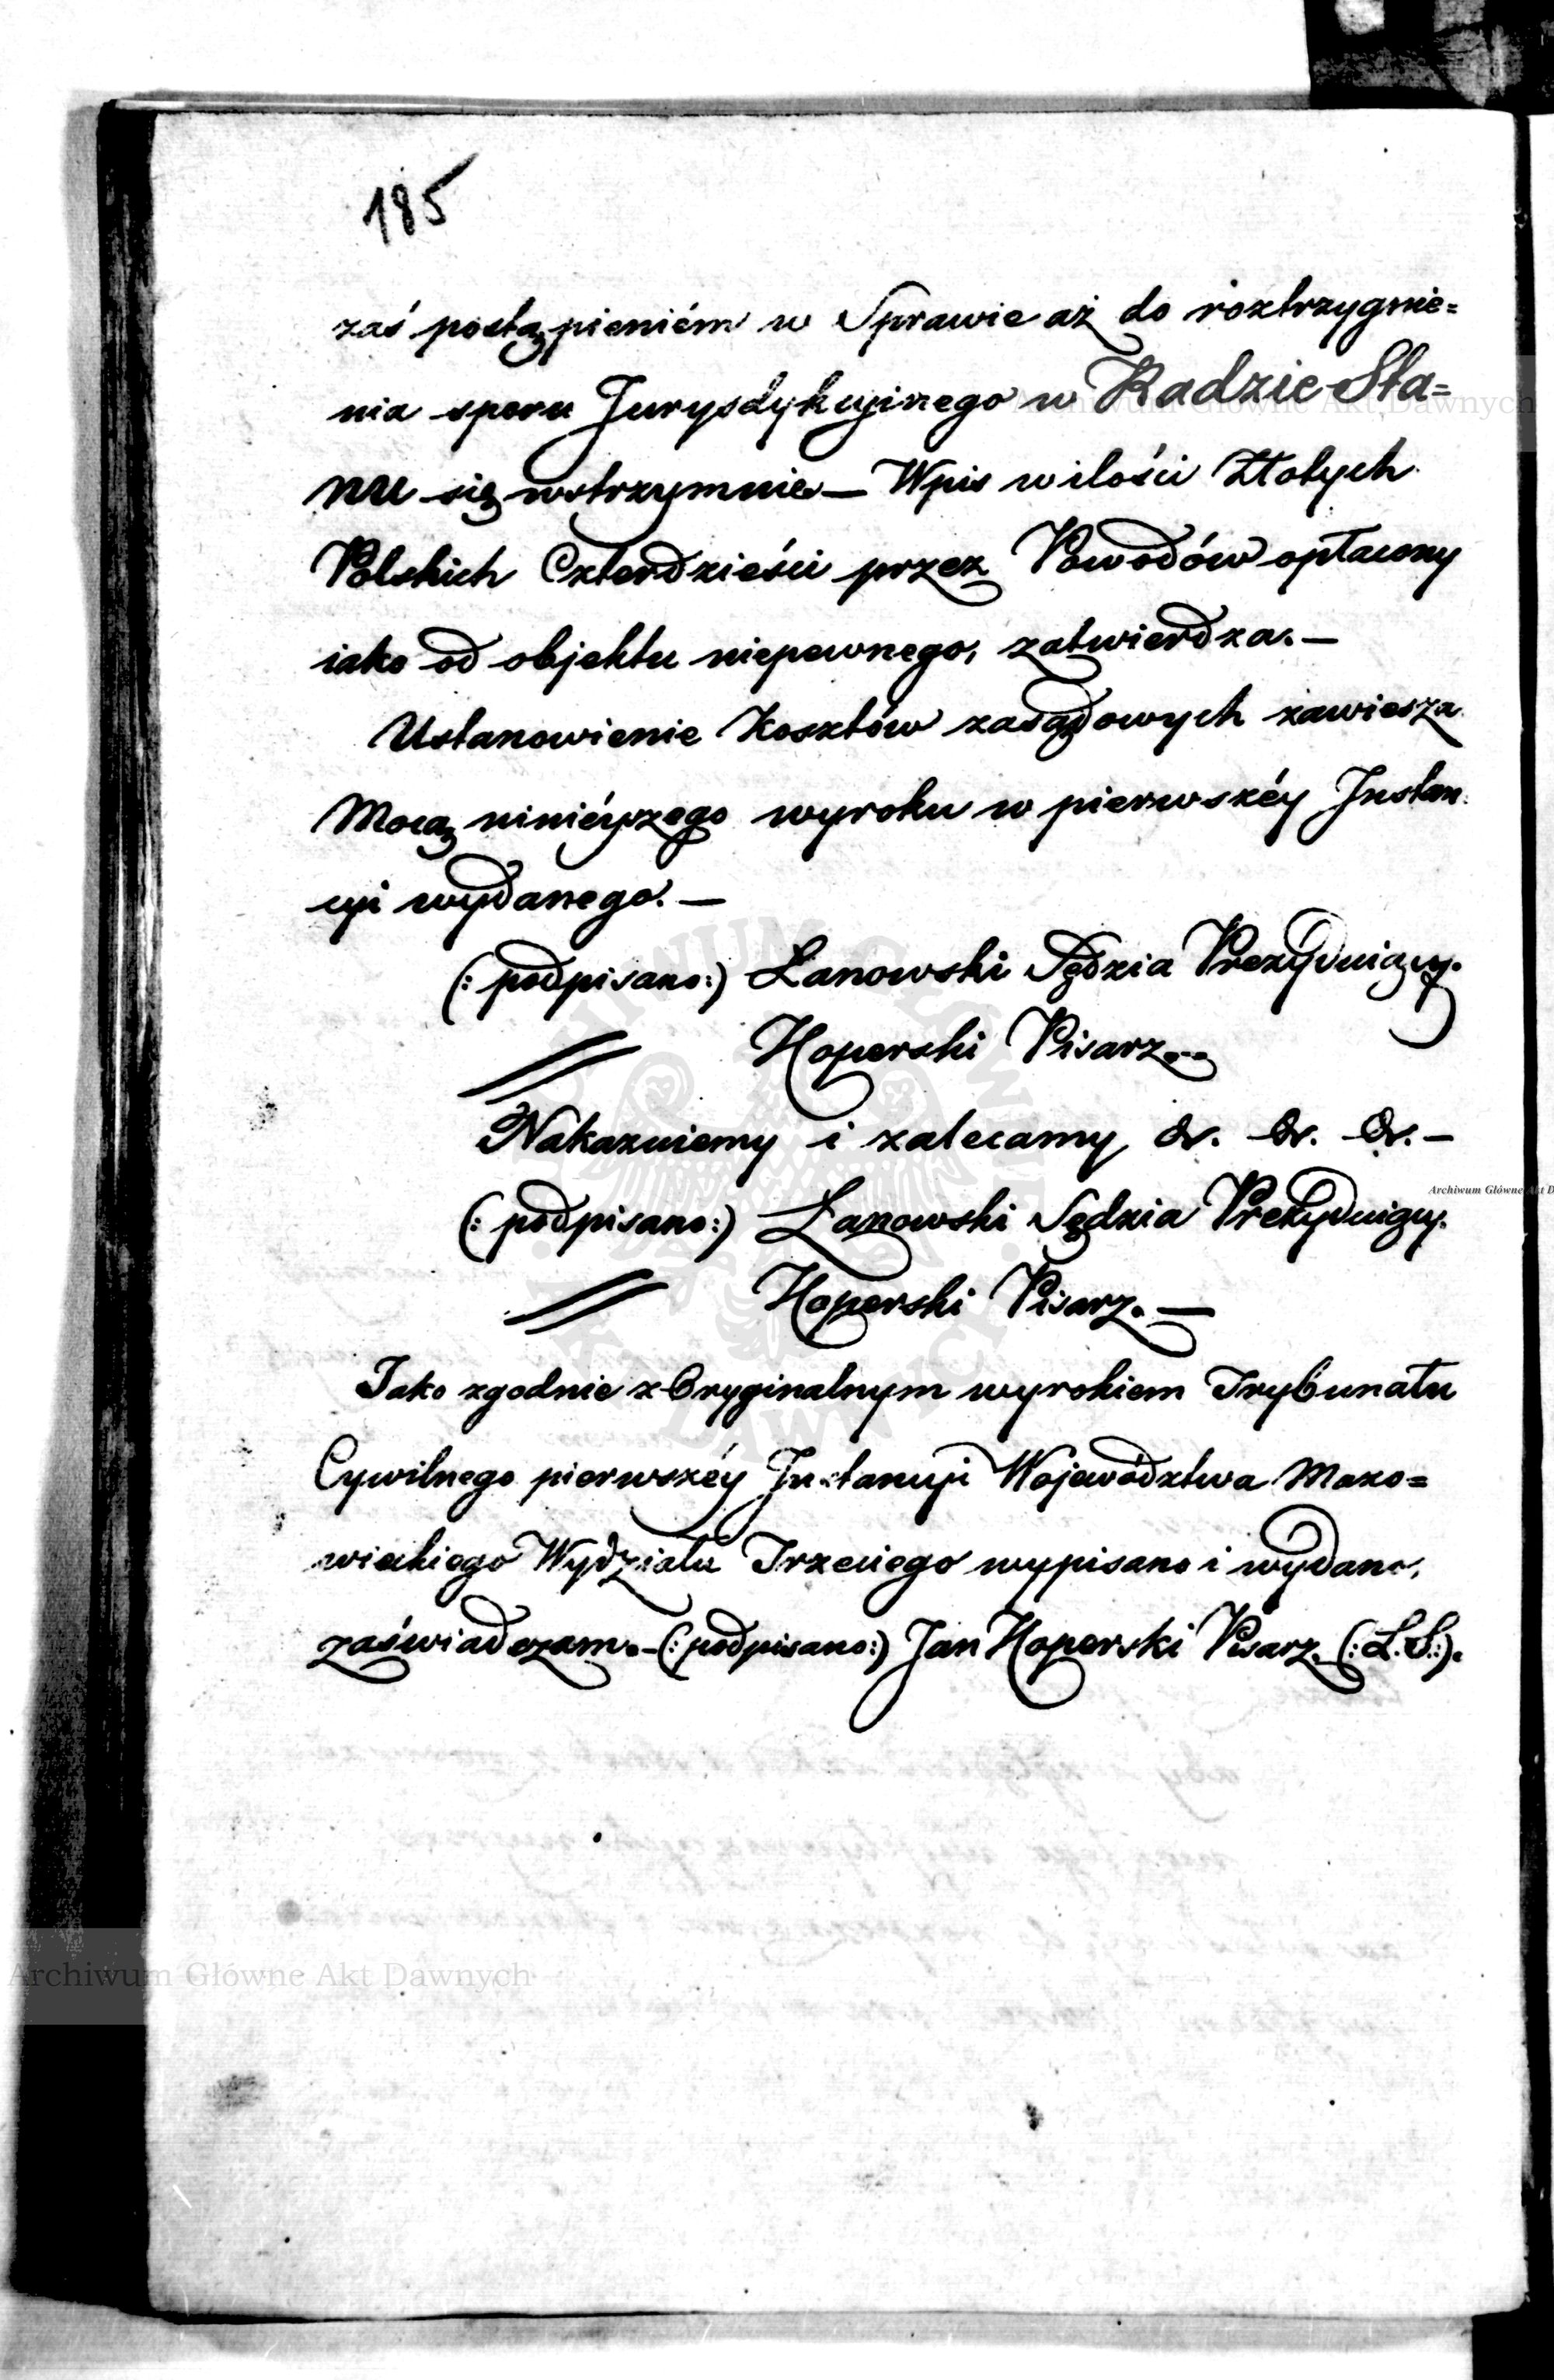 185
zaś postąpieniém w Sprawie aż do roztrzygnie=
nia sporu Jurysdykcyinego w Radzie Sta=
nu się wstrzymuie – Wpis w ilości Złotych
Polskich Czterdzieści przez Powodów opłacony
iako od objektu niepewnego, zatwierdza. –
Ustanowienie Kosztów zasądowych zawiesza
Mocą ninieyszego wyroku w pierwszéy Instan
cyi wydanego. –
(: podpisano :) Łanowski Sędzia Prezyduiący.
// Hoperski Pisarz. –
Nakazuiemy i zalecamy &. &. &. –
(: podpisano :) Łanowski Sędzia Prezyduiący.
// Hoperski Pisarz. –
Jako zgodnie z Oryginalnym wyrokiem Trybunału
Cywilnego pierwszéy Instancyi Województwa Mazo=
wieckiego Wydziału Trzeciego wypisano i wydano,
zaświadczam. – (: podpisano :) Jan Hoperski Pisarz. (: L. S. :).
Archiwum Główne Akt Dawnych
Archiwum Główne Akt D
Archiwum Główne Akt Dawnych